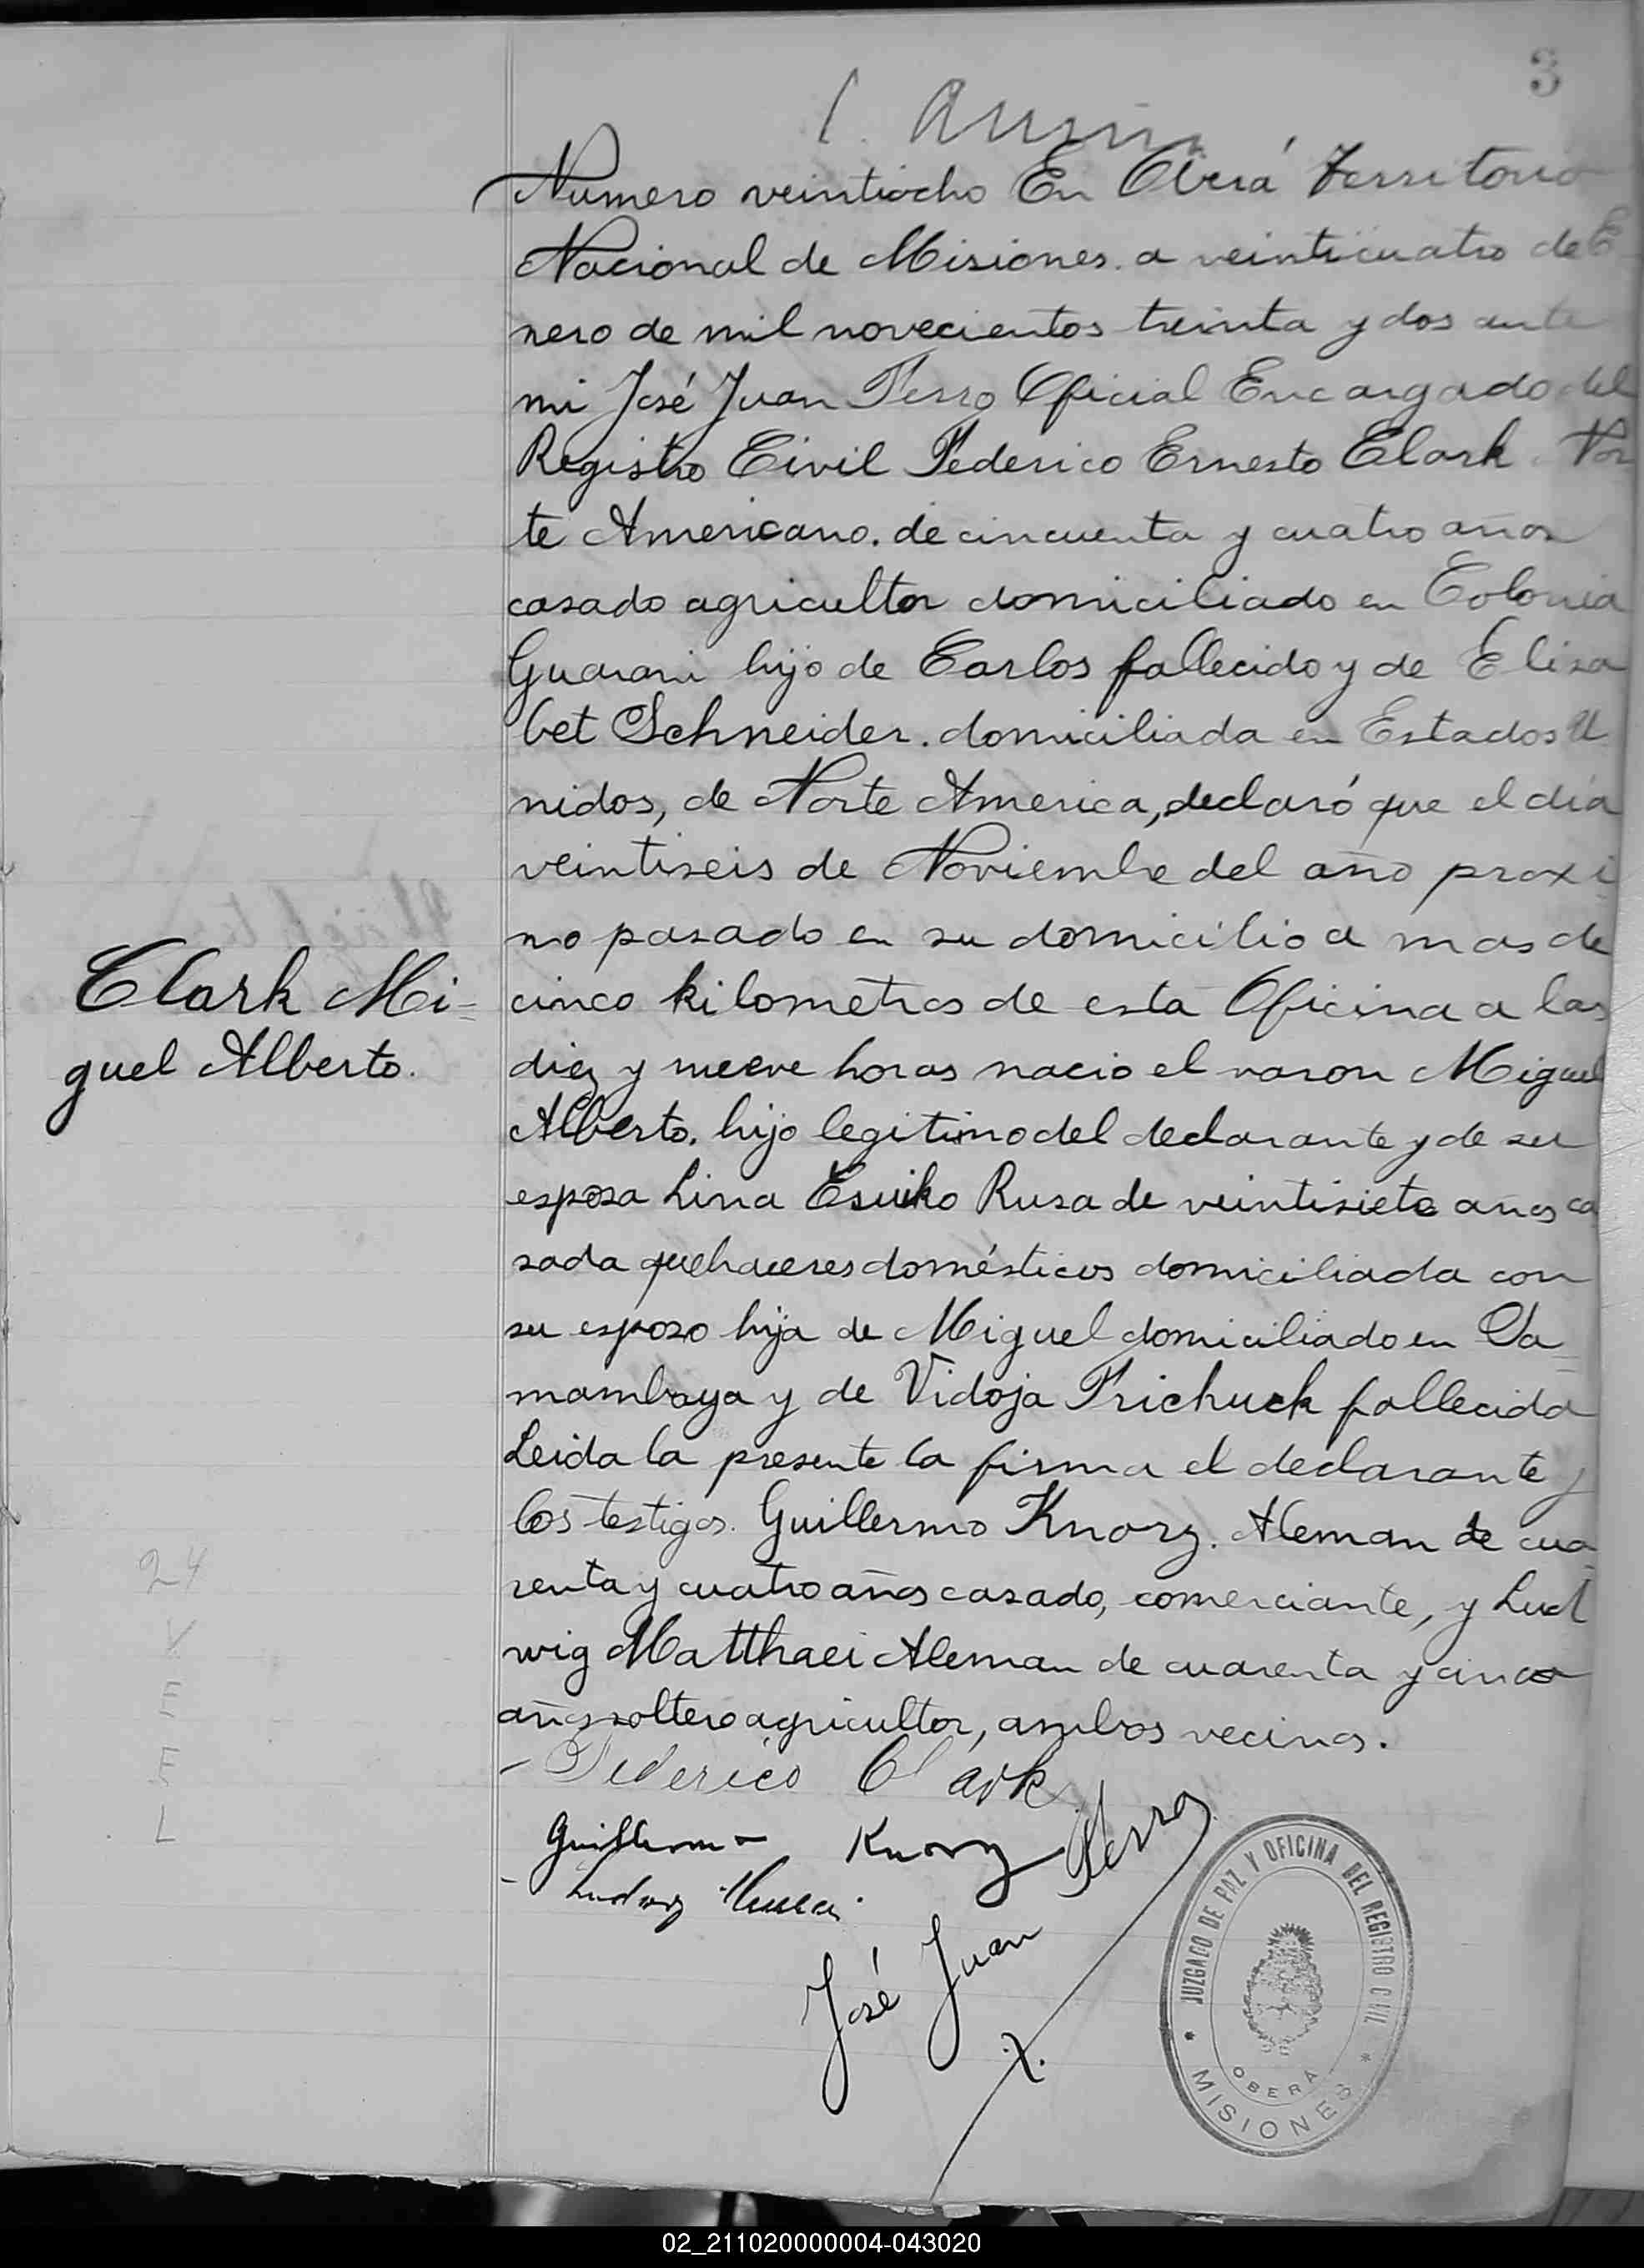 3
Numero veintiocho En Oberá Territorio
Nacional de Misiones. a veinticuatro de E
nero de mil novecientos treinta y dos ante
mi José Juan Ferro Oficial Encargado del
Registro Civil Federico Ernesto Clark. Nor
te Americano. de cincuenta y cuatro años
casado agricultor domiciliado en Colonia
Guarani hijo de Carlos fallecido y de Eliza
bet Schneider. domiciliada en Estados U
nidos, de Norte America, declaró que el día
veintiseis de Noviembre del año proxi
mo pasado en su domicilio a mas de
Clark Mi-
cinco kilometros de esta Oficina a las
guel Alberto.
diez y nueve horas nacio el varon Miguel
Alberto. hijo legitimo del declarante y de su
esposa Lina Rusa de veintisiete años ca
sada quehaceres domésticos domiciliada con
su esposo hija de Miguel domiciliado en
mambaya y de Vidoja Frichuck fallecida
Leida la presente la firma el declarante y
los testigos. Guillermo Knorz. Aleman de cua
renta y cuatro años casado, comerciante, y Lud
wig Matthaei Aleman de cuarenta y cinco
años soltero agricultor, ambos vecinos.
24
V
E
E
L
Federico Clark
Guillermo Knorz
José Juan Ferro
JUZGADO DE PAZ Y OFICINA DEL REGISTRO CIVIL
OBERÁ
* MISIONES *
02_211020000004-043020